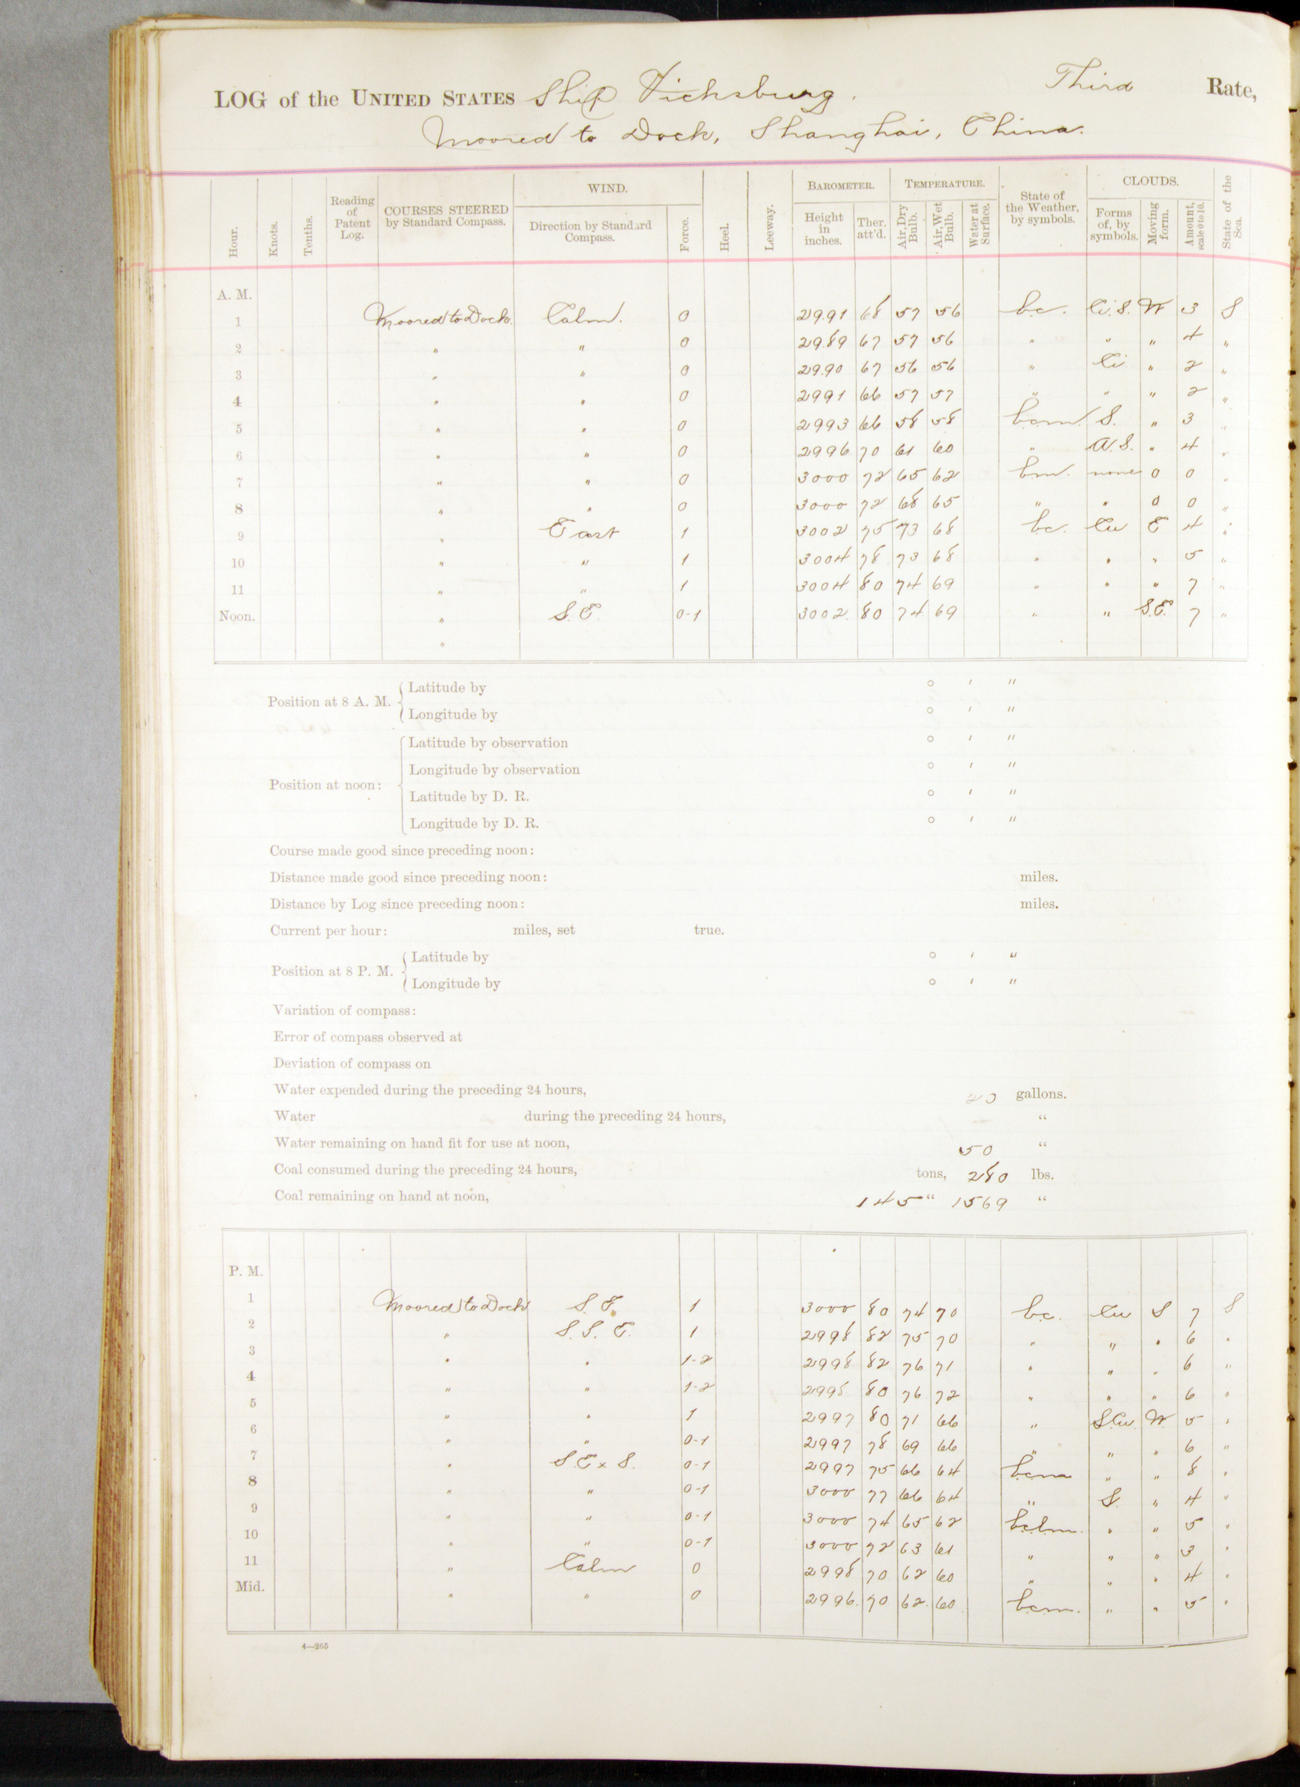 LOG of the UNITED STATES Ship Vicksburg. Third Rate,
Moored to Dock, Shanghai, China.
Hour. Knots. Tenths. Reading of Patent Log. COURSES STEERED by Standard Compass. WIND. Direction by Standard Compass. Force. Heel. Leeway. BAROMETER. Height in inches. Ther. att'd. TEMPERATURE. Air, Dry Bulb. Air, Wet Bulb. Water at Surface. State of the Weather, by symbols. CLOUDS. Forms of, by symbols. Moving form. Amount, scale 0 to 10. State of the Sea.
A. M.
1 Moored to Dock. Calm. 0 2991 68 57 56 bc. Ci.S. W 3 S
2 " " 0 2989 67 57 56 " " " 4 "
3 " " 0 29.90 67 56 56 " Ci " 2 "
4 " " 0 2991 66 57 57 " " " 2 "
5 " " 0 2993 66 58 58 bcm S. " 3 "
6 " " 0 2996 70 61 60 " A.S. " 4 "
7 " " 0 3000 72 65 62 bm. none 0 0 "
8 " " 0 3000 72 68 65 " " 0 0 "
9 " East 1 3002 75 73 68 bc. Cu E 4 "
10 " " 1 3004 78 73 68 " " " 5 "
11 " " 1 3004 80 74 69 " " " 7 "
Noon. " S.E. 0-1 3002 80 74 69 " " S.E. 7 "
"
Position at 8 A. M. Latitude by ° ' "
Longitude by ° ' "
Position at noon: Latitude by observation ° ' "
Longitude by observation ° ' "
Latitude by D. R. ° ' "
Longitude by D. R. ° ' "
Course made good since preceding noon:
Distance made good since preceding noon: miles.
Distance by Log since preceding noon: miles.
Current per hour: miles, set true.
Position at 8 P. M. Latitude by ° ' "
Longitude by ° ' "
Variation of compass:
Error of compass observed at
Deviation of compass on
Water expended during the preceding 24 hours, 20 gallons.
Water during the preceding 24 hours, "
Water remaining on hand fit for use at noon, 50 "
Coal consumed during the preceding 24 hours, tons, 280 lbs.
Coal remaining on hand at noon, 145 " 1569 "
P. M.
1 Moored to Dock S.E. 1 3000 80 74 70 bc. Cu S 7 S
2 " S.S.E. 1 2998 82 75 70 " " " 6 "
3 " " 1-2 2998 82 76 71 " " " 6 "
4 " " 1-2 2998 80 76 72 " " " 6 "
5 " " 1 2997 80 71 66 " S.Cu. W. 5 "
6 " " 0-1 2997 78 69 66 " " " 6 "
7 " S E x S. 0-1 2997 75 66 64 bcm " " 8 "
8 " " 0-1 3000 77 66 64 " S. " 4 "
9 " " 0-1 3000 74 65 62 bclm. " " 5 "
10 " " 0-1 3000 72 63 61 " " " 3 "
11 " Calm 0 2998 70 62 60 " " " 4 "
Mid. " " 0 2996. 70 62. 60 bcm. " " 5 "
4—265